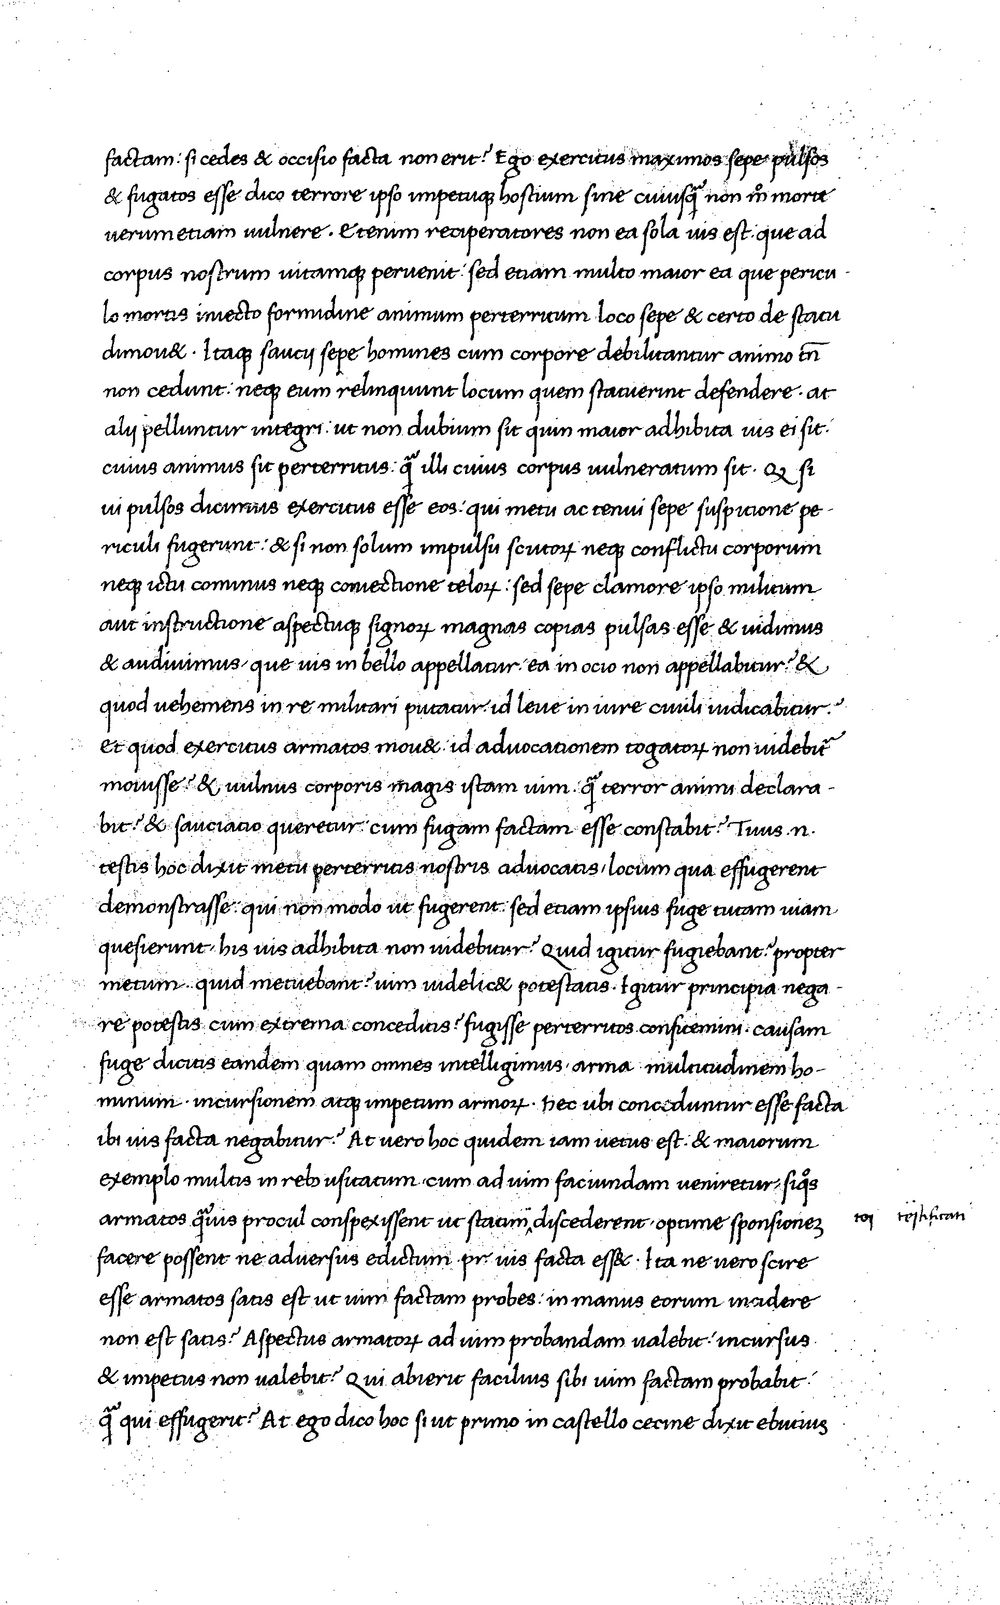 factam: si cedes & occisio facta non erit? Ego exercitus maximos sepe pulsos
& fugatos esse dico terrore ipso impetuq hostium sine cuiusq̃ non m̊ morte
uerum etiam uulnere. Etenim reciperatores non ea sola uis est: que ad
corpus nostrum uitamq peruenit: sed etiam multo maior ea que pericu-
lo mortis iniecto formidine animum perterritum loco sepe & certo de statu
dimou&. Itaq saucij sepe homines cum corpore debilitantur animo tñ
non cedunt: neq eum relinquunt locum quem statuerint defendere. at
alij pelluntur integri: ut non dubium sit quin maior adhibita uis ei sit:
cuius animus sit perterritus: q̃ illi cuius corpus uulneratum sit. Q si
ui pulsos dicimus exercitus esse eos: qui metu ac tenui sepe suspicione pe-
riculi fugerunt: & si non solum impulsu scutoꝝ neq conflictu corporum
neq ictu cominus neq coniectione teloꝝ: sed sepe clamore ipso militum
aut instructione aspectuq signoꝝ magnas copias pulsas esse & uidimus
& audiuimus, que uis in bello appellatur: ea in ocio non appellabitur? &
quod uehemens in re militari putatur: id leue in iure ciuili iudicabitur?
Et quod exercitus armatos mou&: id aduocationem togatoꝝ non uidebit̃
mouisse? & uulnus corporis magis istam uim: q̃ terror animi declara-
bit? & sauciatio queretur: cum fugam factam esse constabit? Tuus .n.
testis hoc dixit metu perterritis nostris aduocatis, locum qua effugerent
demonstrasse: qui non modo ut fugerent: sed etiam ipsius fuge tutam uiam
quesierunt, his uis adhibita non uidebitur? Quid igitur fugiebant? propter
metum. quid metuebant? uim uidelic& potestatis. Igitur principia nega-
re potestis cum extrema conceditis? fugisse perterritos confitemini: causam
fuge dicitis eandem quam omnes intelligimus, arma multitudinem ho-
minum. incursionem atq impetum armoꝝ. hec ubi conceduntur esse facta
ibi uis facta negabitur? At uero hoc quidem iam uetus est: & maiorum
exemplo multis in reb usitatum, cum ad uim faciundam ueniretur, siq̃s
armatos q̃uis procul conspexissent ut statim discederent, optime sponsionez toi testificati
facere possent ne aduersus edictum pr. uis facta ess&. Ita ne uero scire
esse armatos satis est ut uim factam probes: in manus eorum incidere
non est satis? Aspectus armatoꝝ ad uim probandam ualebit: incursus
& impetus non ualebit? Qui abierit facilius sibi uim factam probabit:
q̃ qui effugerit? At ego dico hoc si ut primo in castello cecine dixit ebutius